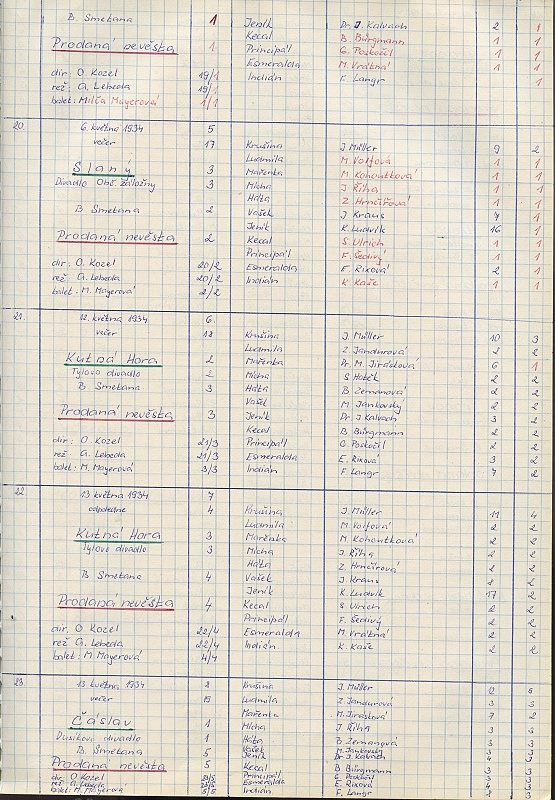 B. Smetana 1 Jeník Dr. J. Kalvach 2 1
Kecal B. Bürgmann 1 1
Prodaná nevěsta 1 Principál C. Poskočil 1 1
Esmeralda M. Vrátná 1 1
dir. O. Kozel 19/1 Indián F. Langr 1
rež. G. Lebeda 19/1
balet: Milča Mayerová 1/1
20. 6. května 1934 5
večer 17 Krušina J. Müller 9 2
Ludmila M. Volfová 1 1
Slaný 3 Mařenka M. Kohoutková 1 1
Divadlo Obč. záložny 3 Mícha J. Říha 1 1
Háta Z. Hrnčířová 1 1
B Smetana 2 Vašek J Kraus 7 1
Jeník K. Ludvík 16 1
Prodaná nevěsta 2 Kecal S. Ulrich 1 1
Principál F. Šedivý 1 1
dir: O. Kozel 20/2 Esmeralda E. Rixová 2 1
rež. G. Lebeda 20/2 Indián K. Kaše 1 1
balet: M. Mayerová 2/2
21. 12. května 1934 6.
večer 18 Krušina J. Müller 10 3
Ludmila Z. Jandurová 2 2
Kutná Hora 2 Mařenka Dr. M. Jirásková 6 1
Tylovo divadlo 2 Mícha S. 2 2
B Smetana 3 Háta B. Zemanová 2 2
Vašek M. Jankovský 2 2
Prodaná nevěsta 3 Jeník Dr. J. Kalvach 3 2
Kecal B. Bürgmann 2 2
dir: O. Kozel 21/3 Principál C. Poskočil 2 2
rež. G. Lebeda 21/3 Esmeralda E. Rixová 3 2
balet: M. Mayerová 3/3 Indián F. Langr 7 2
22 13 května 1934 7
odpoledne 4 Krušina J. Müller 11 4
Ludmila M. Volfová 2 2
Kutná Hora 3 Mařenka M. Kohoutková 2 2
Tylovo divadlo 3 Mícha J. Říha 2 2
Háta Z. Hrnčířová 2 2
B. Smetana 4 Vašek J. Kraus 8 2
Jeník K. Ludvík 17 2
Prodaná nevěsta 4 Kecal S Ulrich 2 2
Principál F. Šedivý 2 2
dir. O. Kozel 22/4 Esmeralda M. Vrátná 2 2
rež G. Lebeda 22/4 Indián K. Kaše 2 2
balet: M. Mayerová 4/4
23. 13. května 1934 8 Krušina J. Müller 12 5
večer 19 Ludmila Z. Jandurová 3 3
Mařenka M. Jirásková 7 2
Čáslav 1 Mícha J. Říha 3 3
Dusíkovo divadlo 1 Háta B Zemanová 3 3
B. Smetana 5 Vašek M. Jankovský 3 3
Jeník Dr J. Kalvach 4 3
Prodaná nevěsta 5 Kecal B Bürgmann 3 3
dir: O Kozel 23/5 Principál C Poskočil 3 3
rež. G. Lebeda 23/5 Esmeralda E. Rixová 4 3
balet: M. Mayerová 5/5 Indián F. Langr 8 3